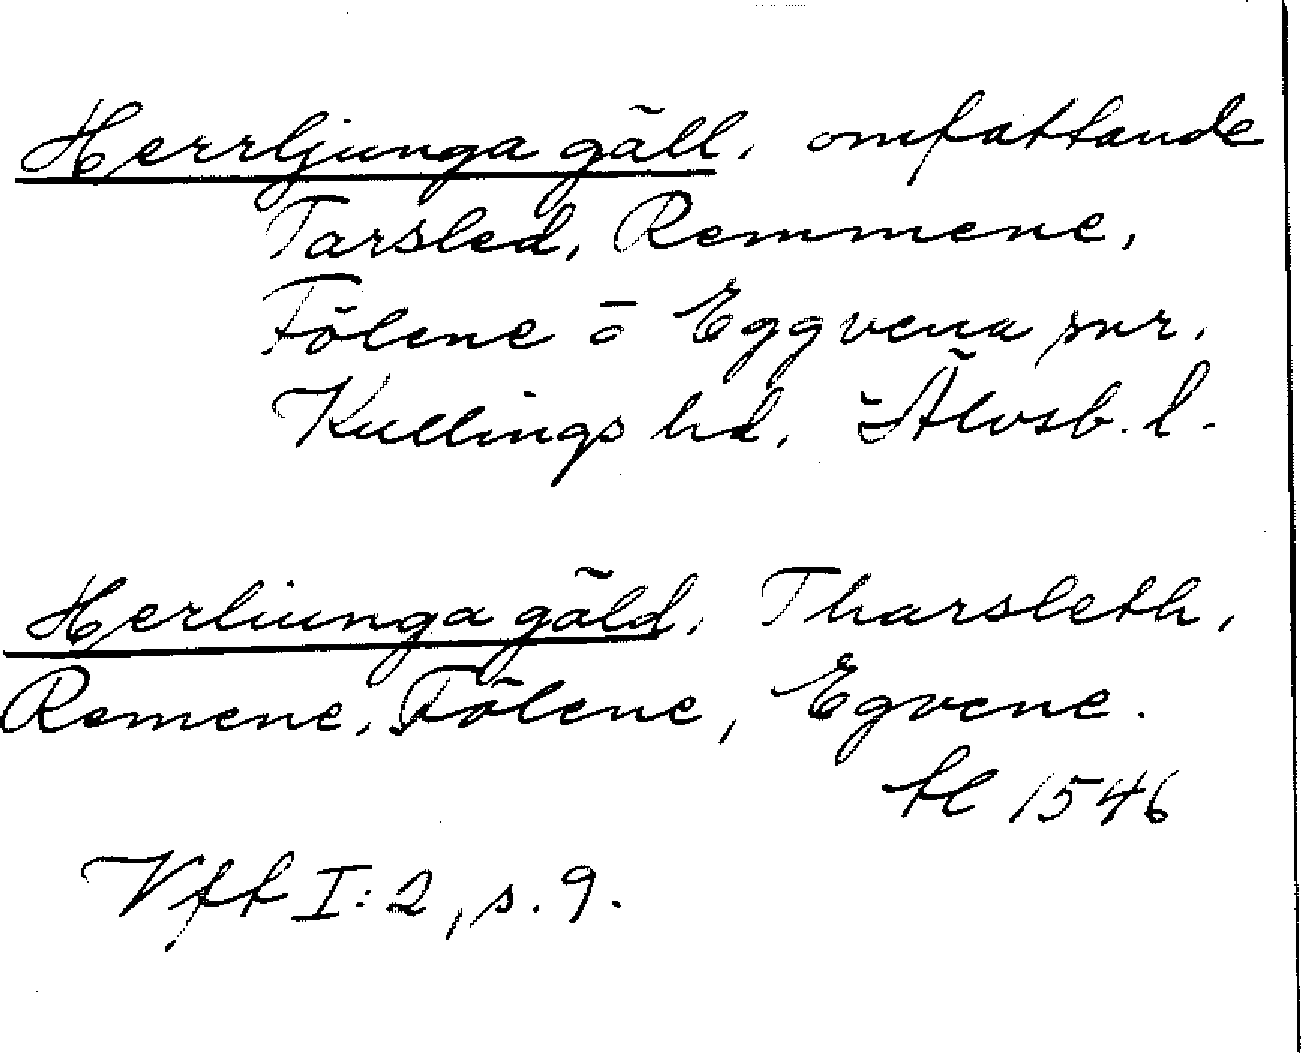 Herrljunga gäll, omfattande
Tarsled, Remmene,
Fölene o Eggvena snr.
Kullings hd, Älvsb. l.
Herliunga gäld, Tharsleth,
Remene, Fölene, Egvene.
tl 1546
Vft I:2, s. 9.